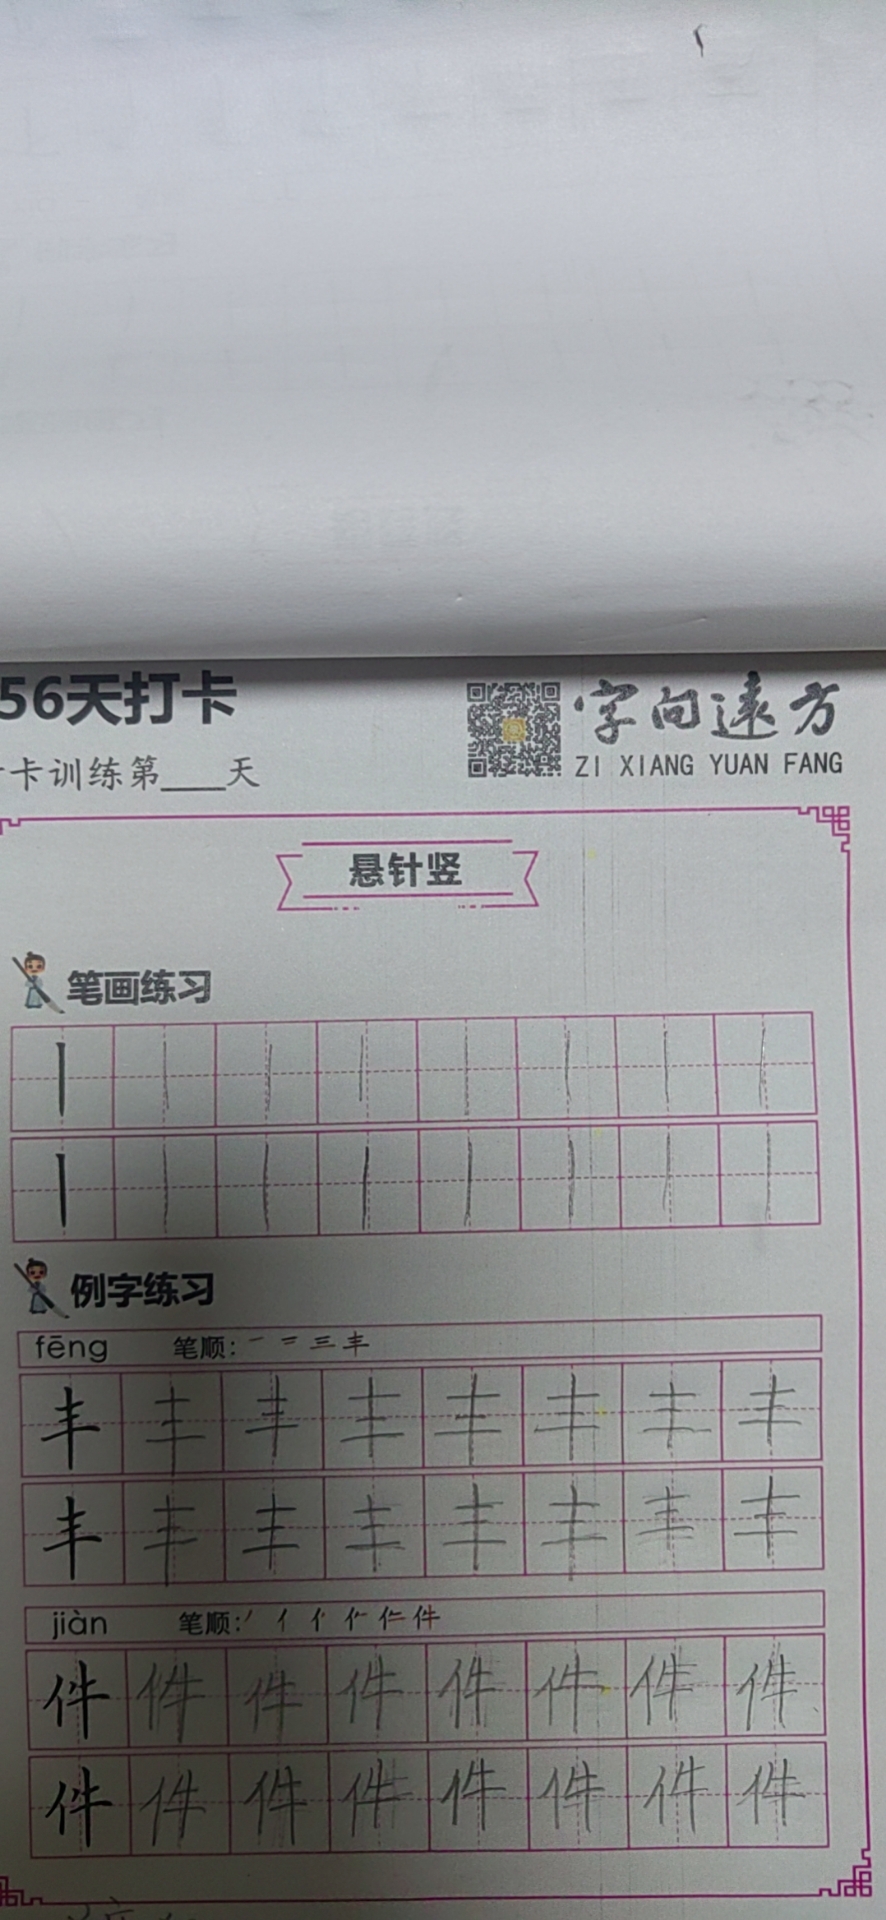 56天打卡
卡训练第____天
字向遠方
ZI XIANG YUAN FANG
悬针竖
笔画练习
丨 丨 丨 丨 丨 丨 丨 丨
丨 丨 丨 丨 丨 丨 丨 丨
例字练习
fēng 笔顺: 一 二 三 丰
丰 丰 丰 丰 丰 丰 丰 丰
丰 丰 丰 丰 丰 丰 丰 丰
jiàn 笔顺:
件 件 件 件 件 件 件 件
件 件 件 件 件 件 件 件